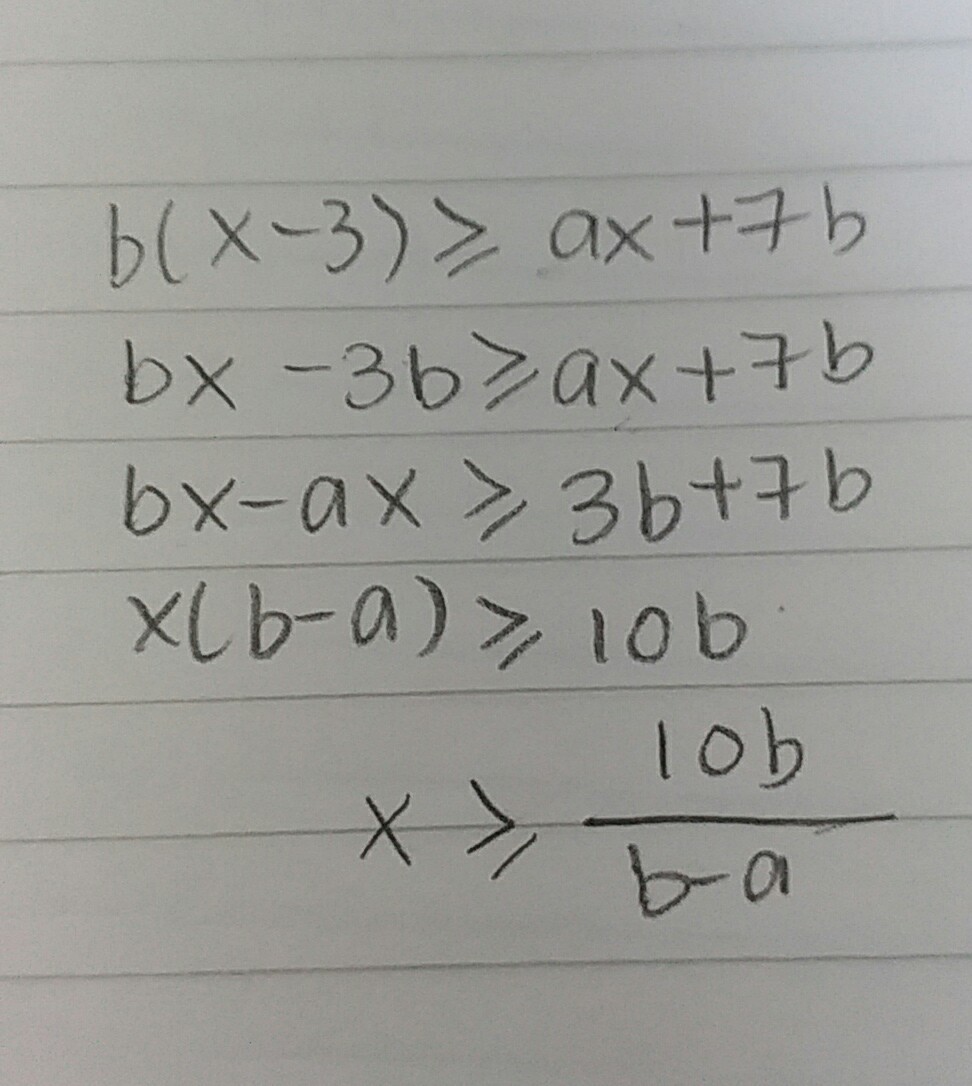 b(x-3)⩾ ax+7b
bx -3b⩾ax+7b
bx-ax ⩾ 3b+7b
x(b-a)⩾ 10b
x ⩾ 10b/b-a